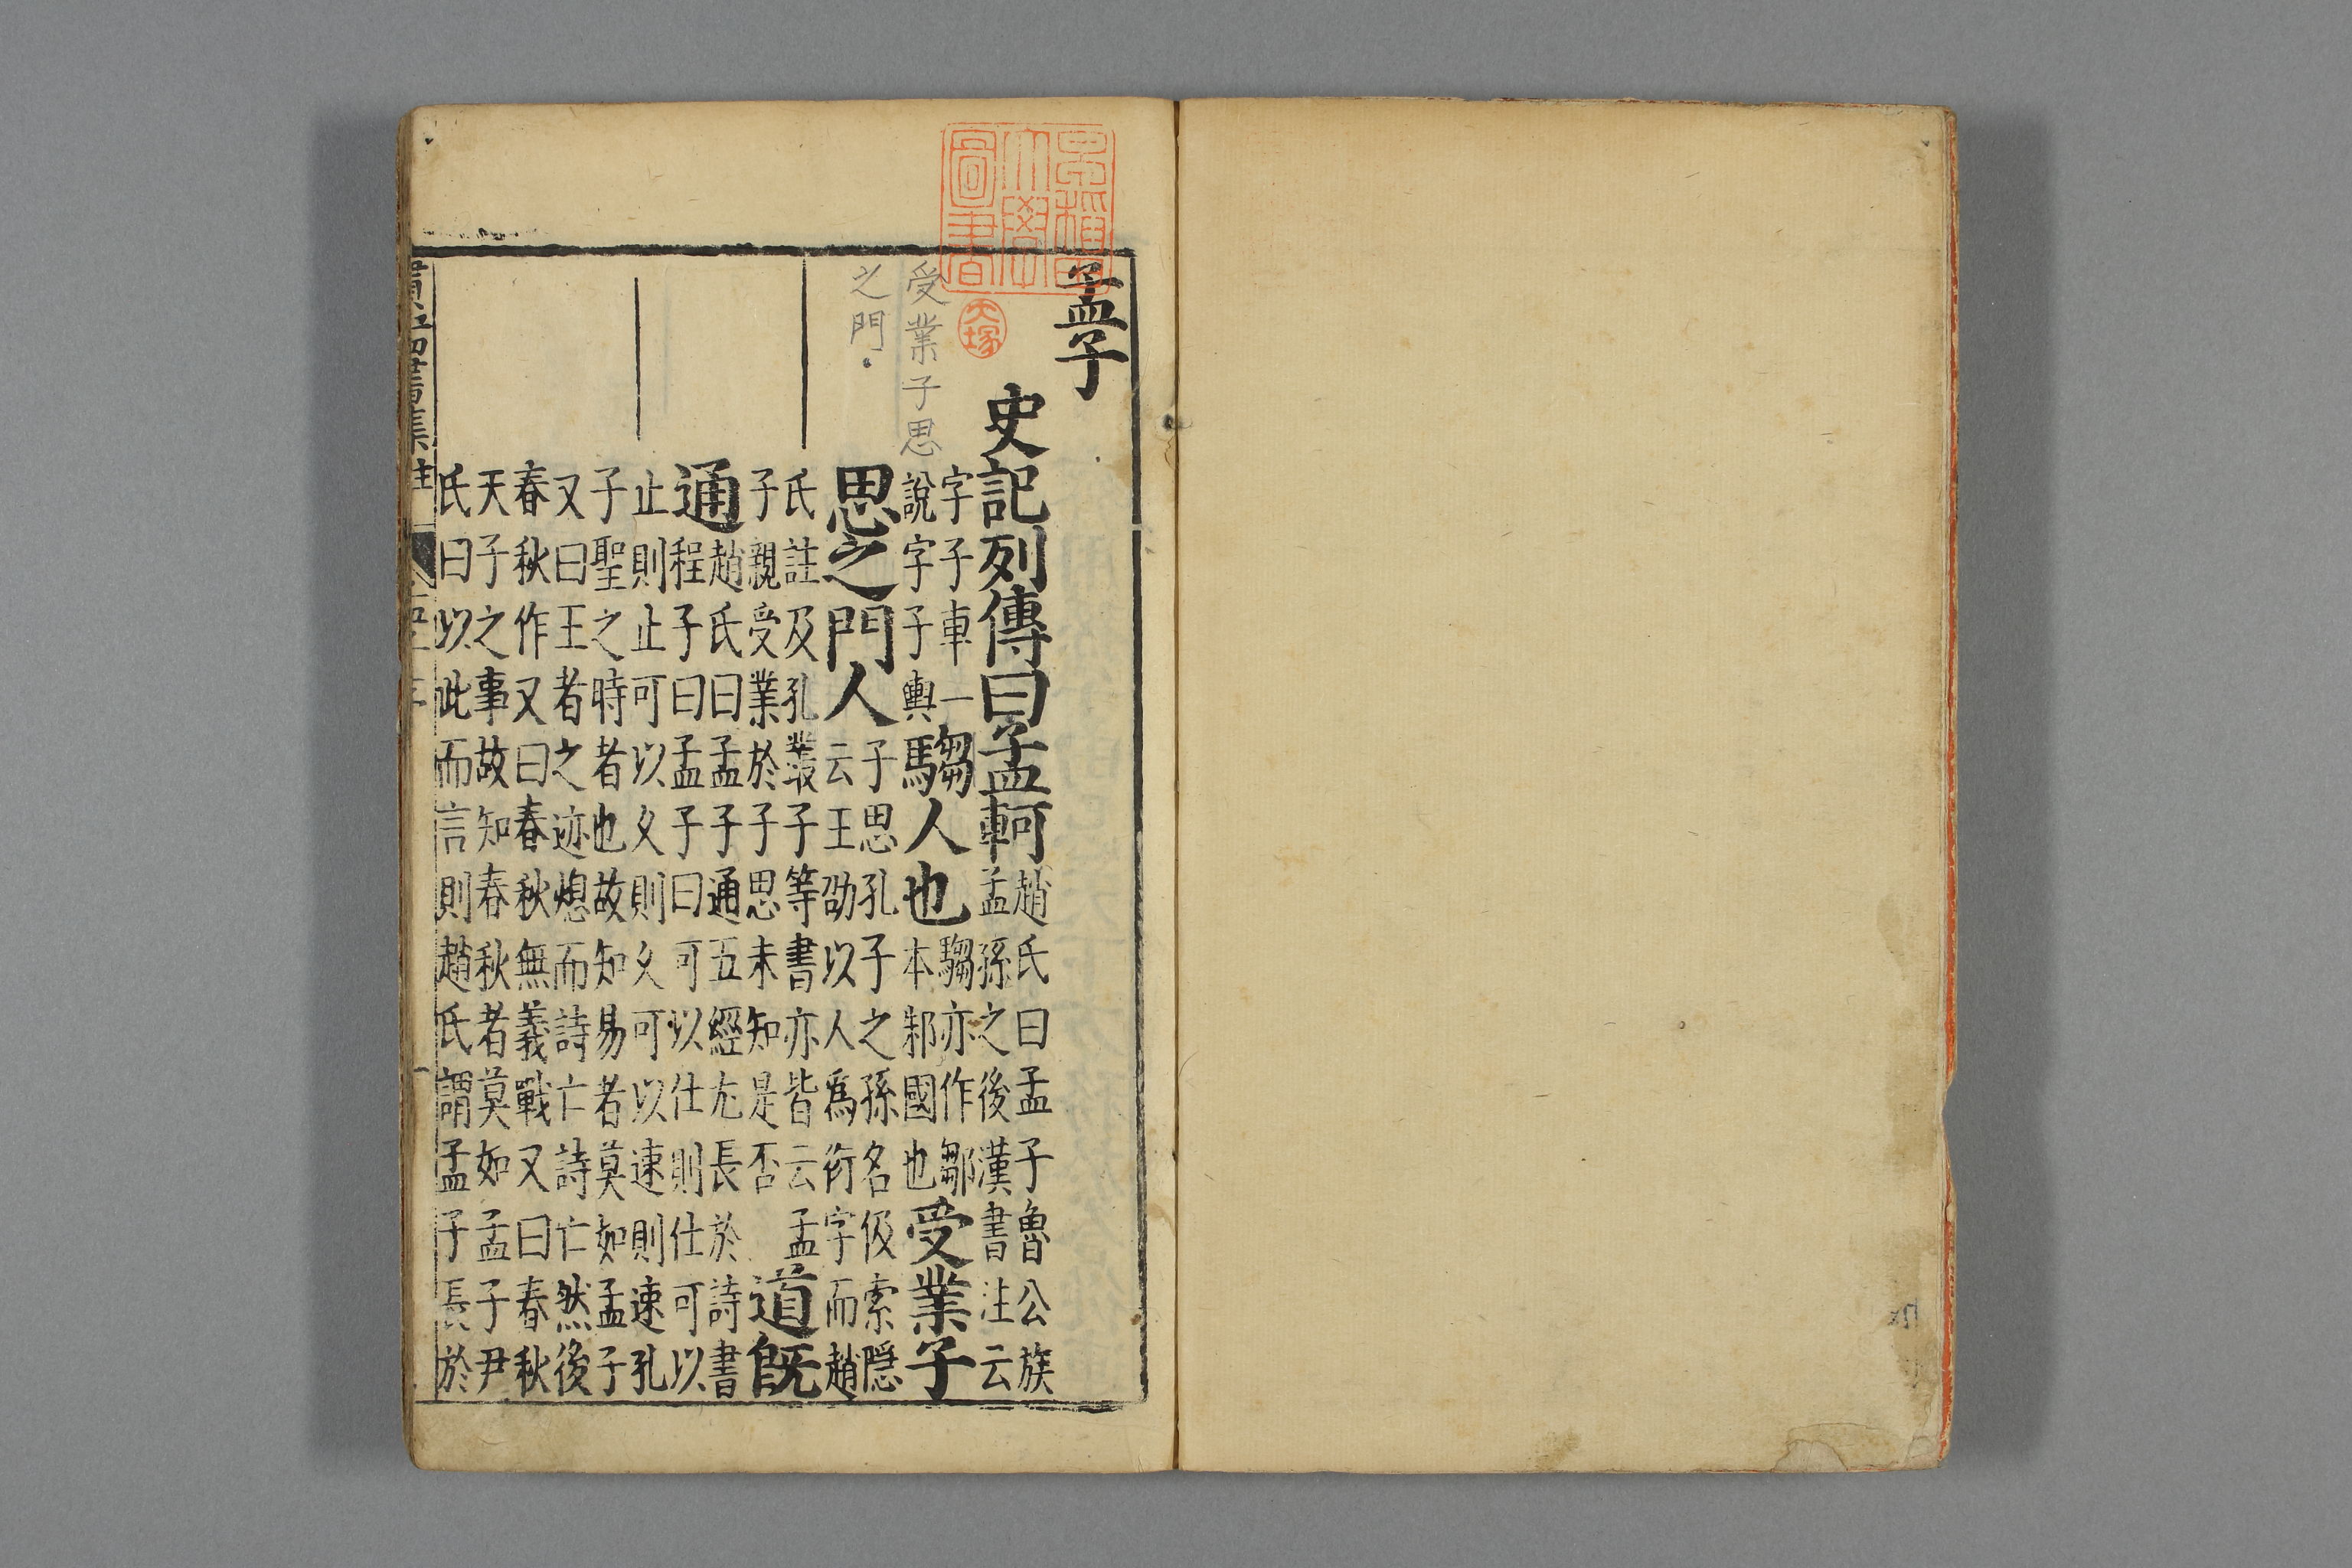 早稲田
大學
圖書
大塚
受業子思
之門
孟子
史記列傳曰孟軻
趙氏曰孟子魯公族
孟孫之後漢書注云
字子車一
說字子輿
騶人也
騶亦作鄒
本邾國也
受業子
思之門人
子思孔子之孫名伋索隱
云王劭以人爲衍字而趙
氏註及孔叢子等書亦皆云孟
子親受業於子思未知是否
道旣
通
趙氏曰孟子通五經尤長於詩書
程子曰孟子曰可以仕則仕可以
止則止可以久則久可以速則速孔
子聖之時者也故知易者莫如孟子
又曰王者之迹熄而詩亡詩亡然後
春秋作又曰春秋無義戰又曰春秋
天子之事故知春秋者莫如孟子尹
氏曰以此而言則趙氏謂孟子長於